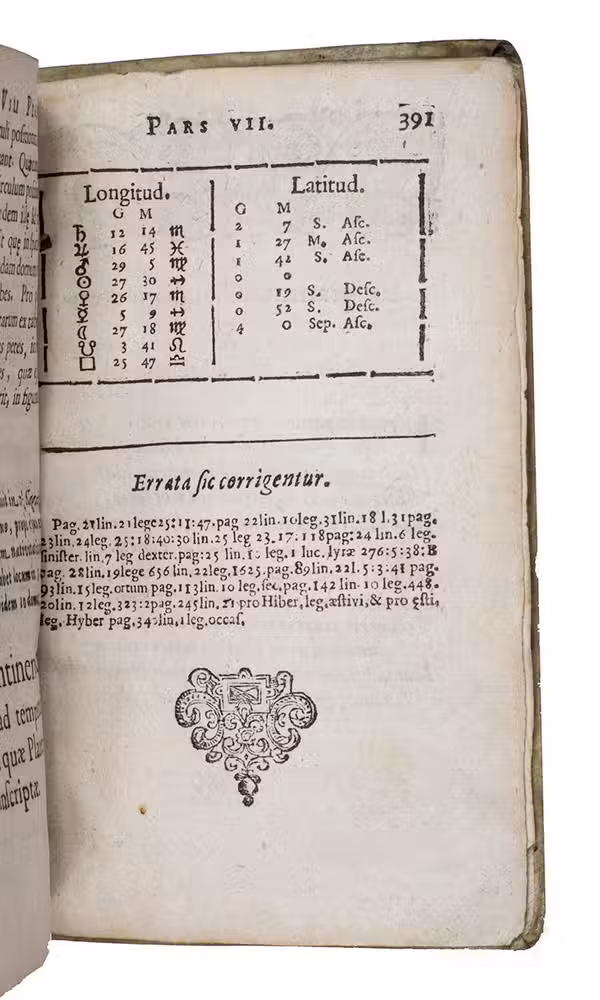 Pars VII. 391
Longitud. Latitud.
G M G M
♄ 12 14 ♏ 2 7 S. Aſc.
♃ 16 45 ♓ 1 27 M. Aſc.
♂ 29 5 ♍ 1 42 S. Aſc.
☉ 27 30 ♐ 0 0
♀ 26 17 ♏ 0 19 S. Deſc.
☿ 5 9 ♐ 0 52 S. Deſc.
27 18 ♍ 4 0 Sep. Aſc.
☋ 3 41 ♌
□ 25 47 ♎
Errata ſic corrigentur.
Pag. 21lin. 21lege25:11:47.pag 22lin.10leg.31lin.18 l.31pag.
23lin.24leg.25:18:40:30lin.25 leg 23.17:118pag:24 lin.6 leg.
ſiniſter. lin.7 leg dexter.pag:25 lin. leg.1 luc. lyræ 276:5:38:B
pag. 28lin.19lege 636 lin.22leg.1625.pag.89lin.22l.5:3:41 pag.
93lin.15leg.ortum pag.113lin.10 leg.ſec,pag.142 lin.10 leg.448.
20lin.12leg.323:2pag.245lin. pro Hiber, leg.æſtivi,& pro ęſti,
leg. Hyber pag.34 lin. leg.occaſ.